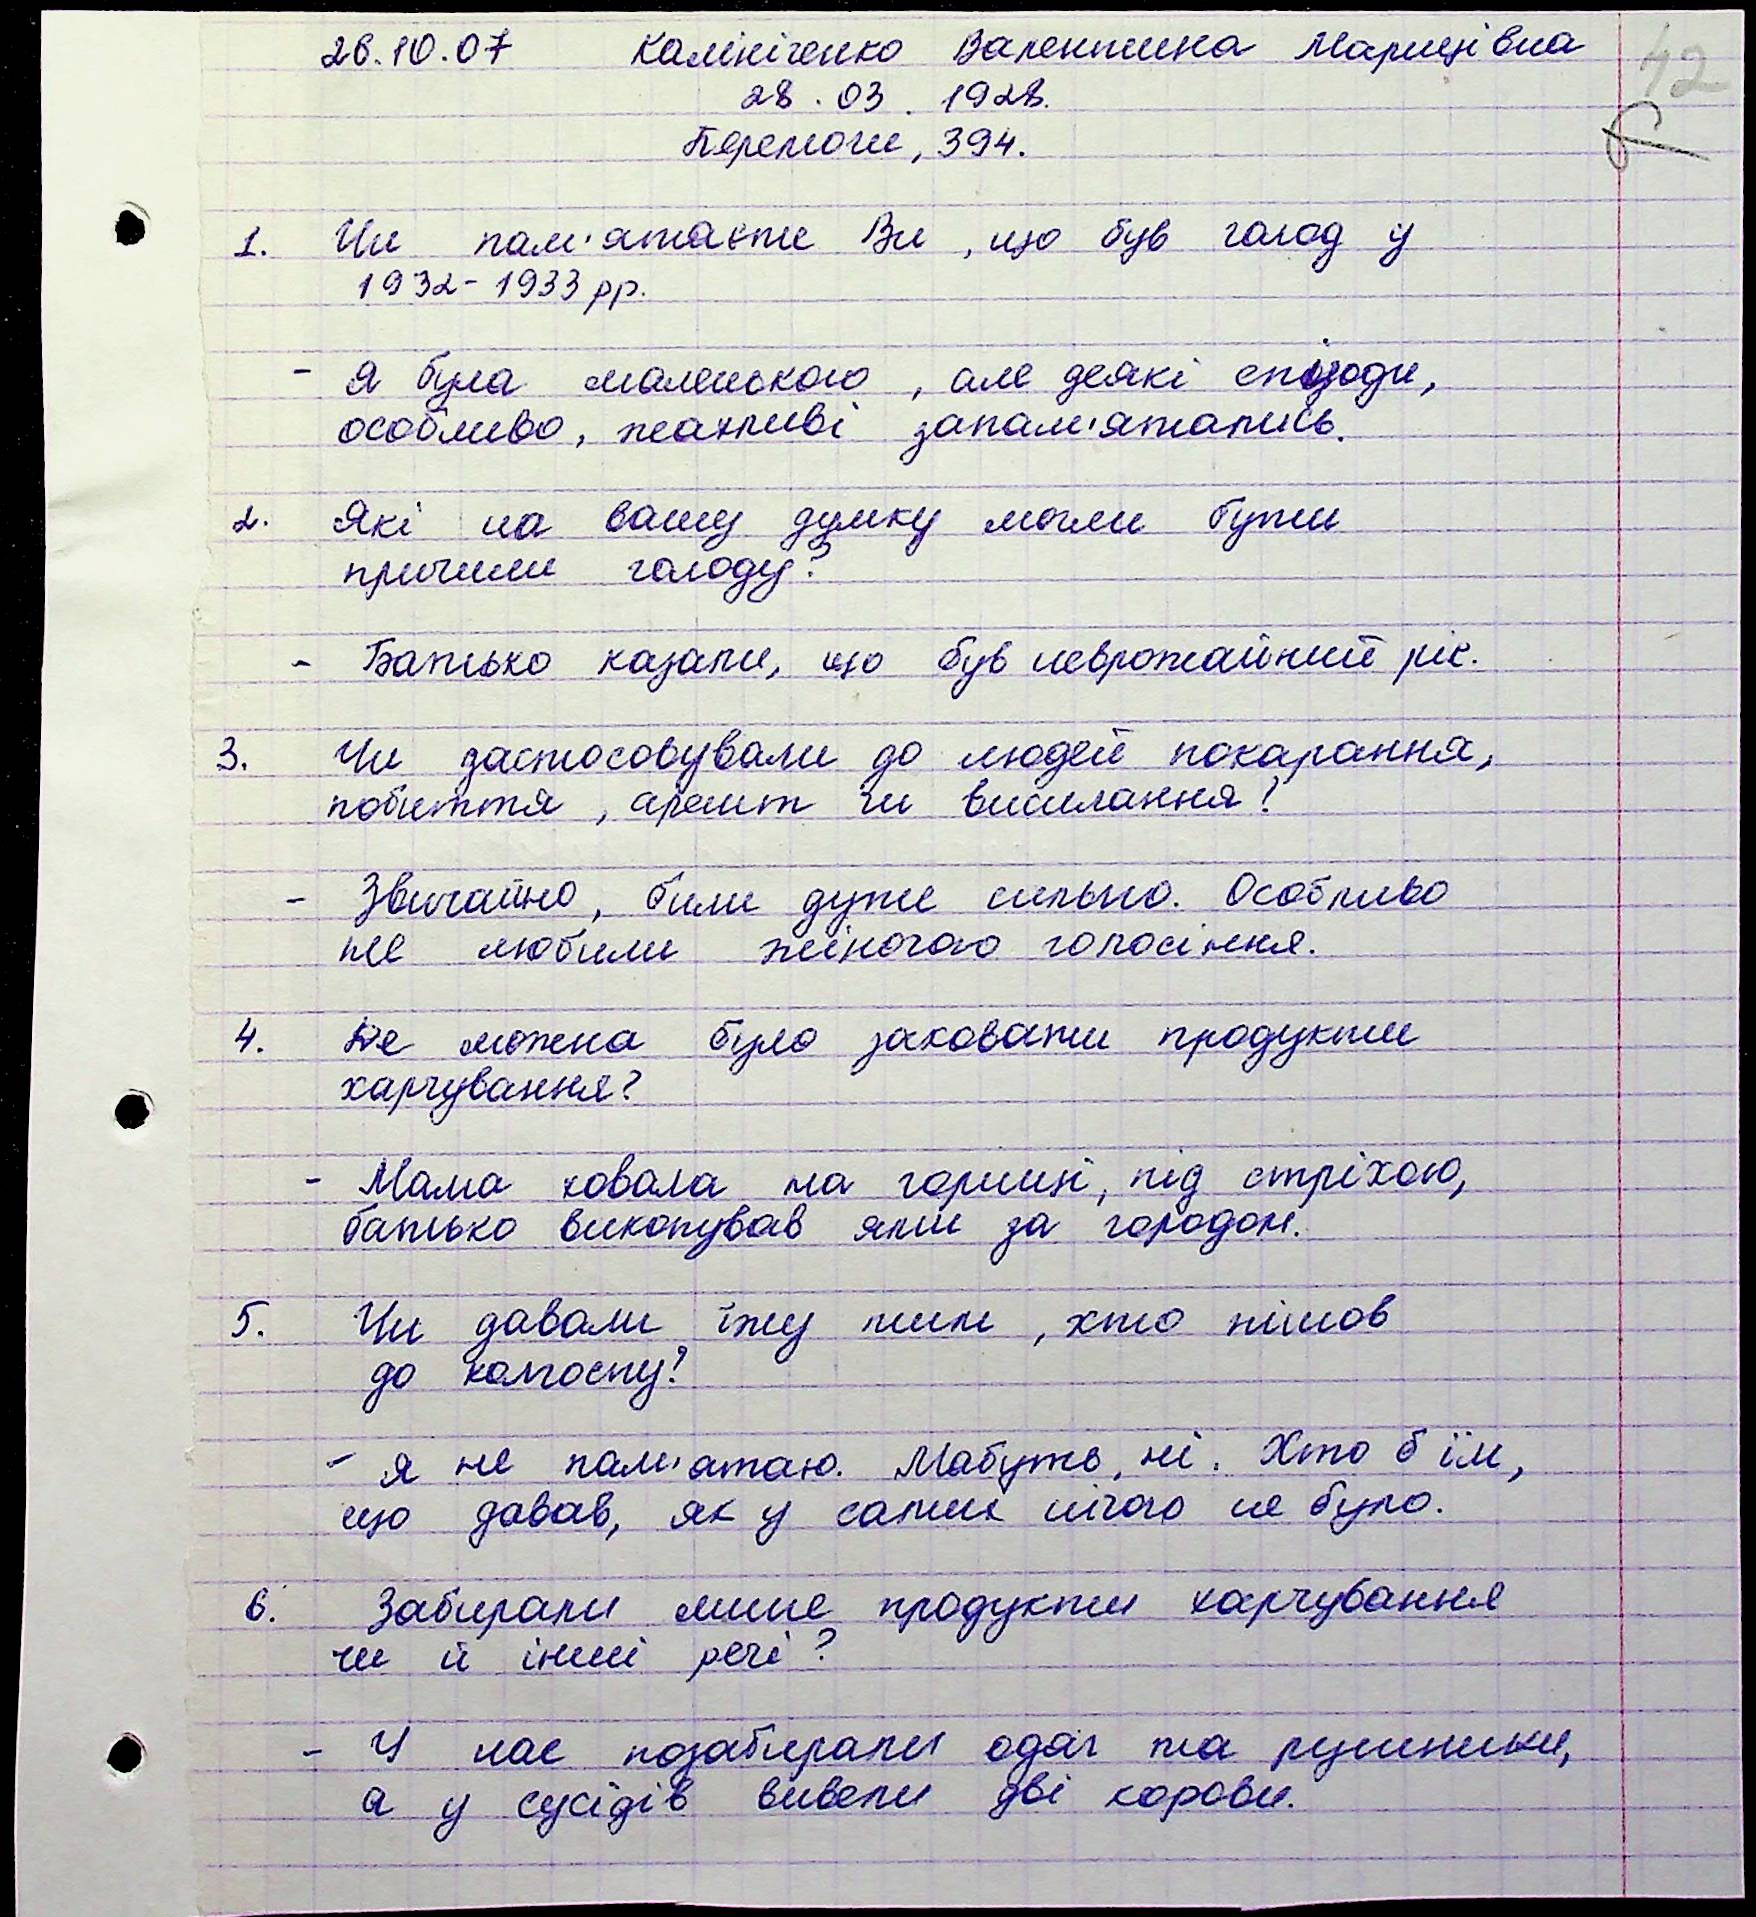 26.10.07 Калініченко Валентина Мартиівна
28.03.1928.
Перемоги, 394.
42
1. Чи пам'ятаєте Ви, що був голод у
1932-1933 рр.
- Я була маленькою, але деякі епізоди,
особливо, жахливі запам'ятались.
2. Які на вашу думку могли бути
причини голоду?
- Батько казали, що був неврожайний рік.
3. Чи застосовували до людей покарання,
побиття, арешт чи висилання?
- Звичайно, били дуже сильно. Особливо
не любили жіночого голосіння.
4. Де можна було заховати продукти
харчування?
- Мама ховала на горищі, під стріхою,
батько викопував ями за городом.
5. Чи давали їжу тим, хто пішов
до колгоспу?
- Я не пам'ятаю. Мабуть, ні. Хто б їм,
що давав, як у самих нічого не було.
6. Забирали лише продукти харчування
чи й інші речі?
- У нас позабирали одяг та рушники,
а у сусідів вивели дві корови.